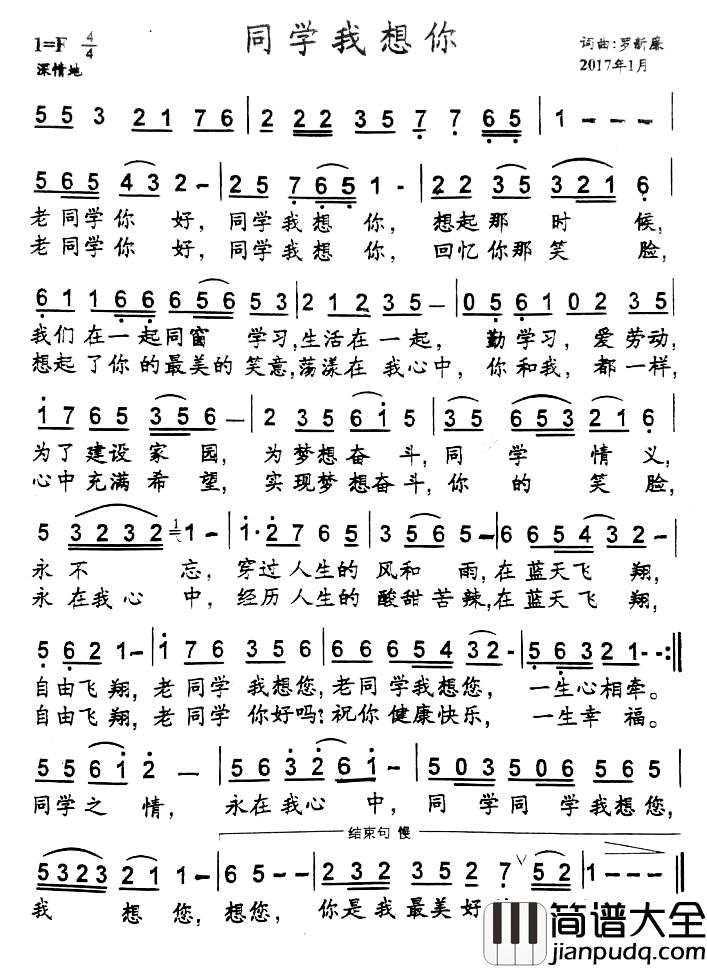 同学我想你
1=F 4/4
词曲:罗新廉
深情地
2017年1月
5 5 3 2 1 7 6 | 2 2 2 2 3 5 7 7 6 5 | 1 - - - |
5 6 5 4 3 2 - | 2 5 7 6 5 1 - | 2 2 3 5 3 2 1 6 |
老同学你 好, 同学我想 你, 想起那 时 候,
老同学你 好, 同学我想 你, 回忆你那笑 脸,
6 1 1 6 6 6 5 6 5 3 | 2 1 2 3 5 - | 0 5 6 1 0 2 3 5 |
我们在一起同窗 学习,生活在一起, 勤学习, 爱劳动,
想起了你的最美的笑意,荡漾在我心中, 你和我, 都一样,
1 7 6 5 3 5 6 - | 2 3 5 6 1 5 | 3 5 6 5 3 2 1 6 |
为了建设家园, 为梦想奋斗,同 学 情义,
心中充满希望, 实现梦想奋斗,你 的 笑脸,
5 3 2 3 2 1 - | 1· 2 7 6 5 | 3 5 6 5 - - | 6 6 5 4 3 2 - |
永不 忘, 穿过人生的 风和 雨,在蓝天飞 翔,
永在我心 中, 经历人生的 酸甜苦辣,在蓝天飞 翔,
5 6 2 1 - | 1 7 6 3 5 6 | 6 6 6 5 4 3 2 - | 5 6 3 2 1 - - :||
自由飞翔, 老同学 我想您,老同学我想您, 一生心相牵。
自由飞翔, 老同学 你好吗?祝你健康快乐, 一生幸 福。
5 5 6 1 2 - | 5 6 3 2 6 1 - | 5 0 3 5 0 6 5 6 5 |
同学之 情, 永在我心 中, 同 学同 学我想您,
结束句 慢
5 3 2 3 2 1 1 - | 6 5 - - | 2 3 2 3 5 2 7 5 2 | 1 - - - ||
我 想您,想您, 你是我最美好
简谱大全
jianpudq.com